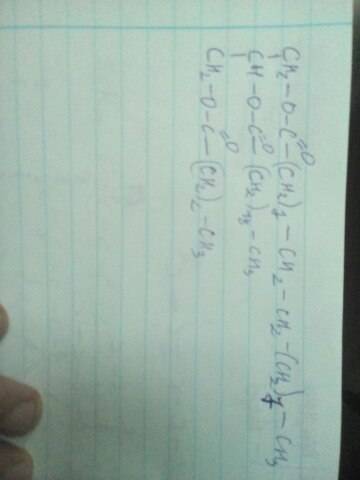 CH2-O-C=O-(CH2)7-CH2-CH2-(CH2)7-CH3
CH-O-C=O-(CH2)13-CH3
CH2-O-C=O-(CH2)2-CH3